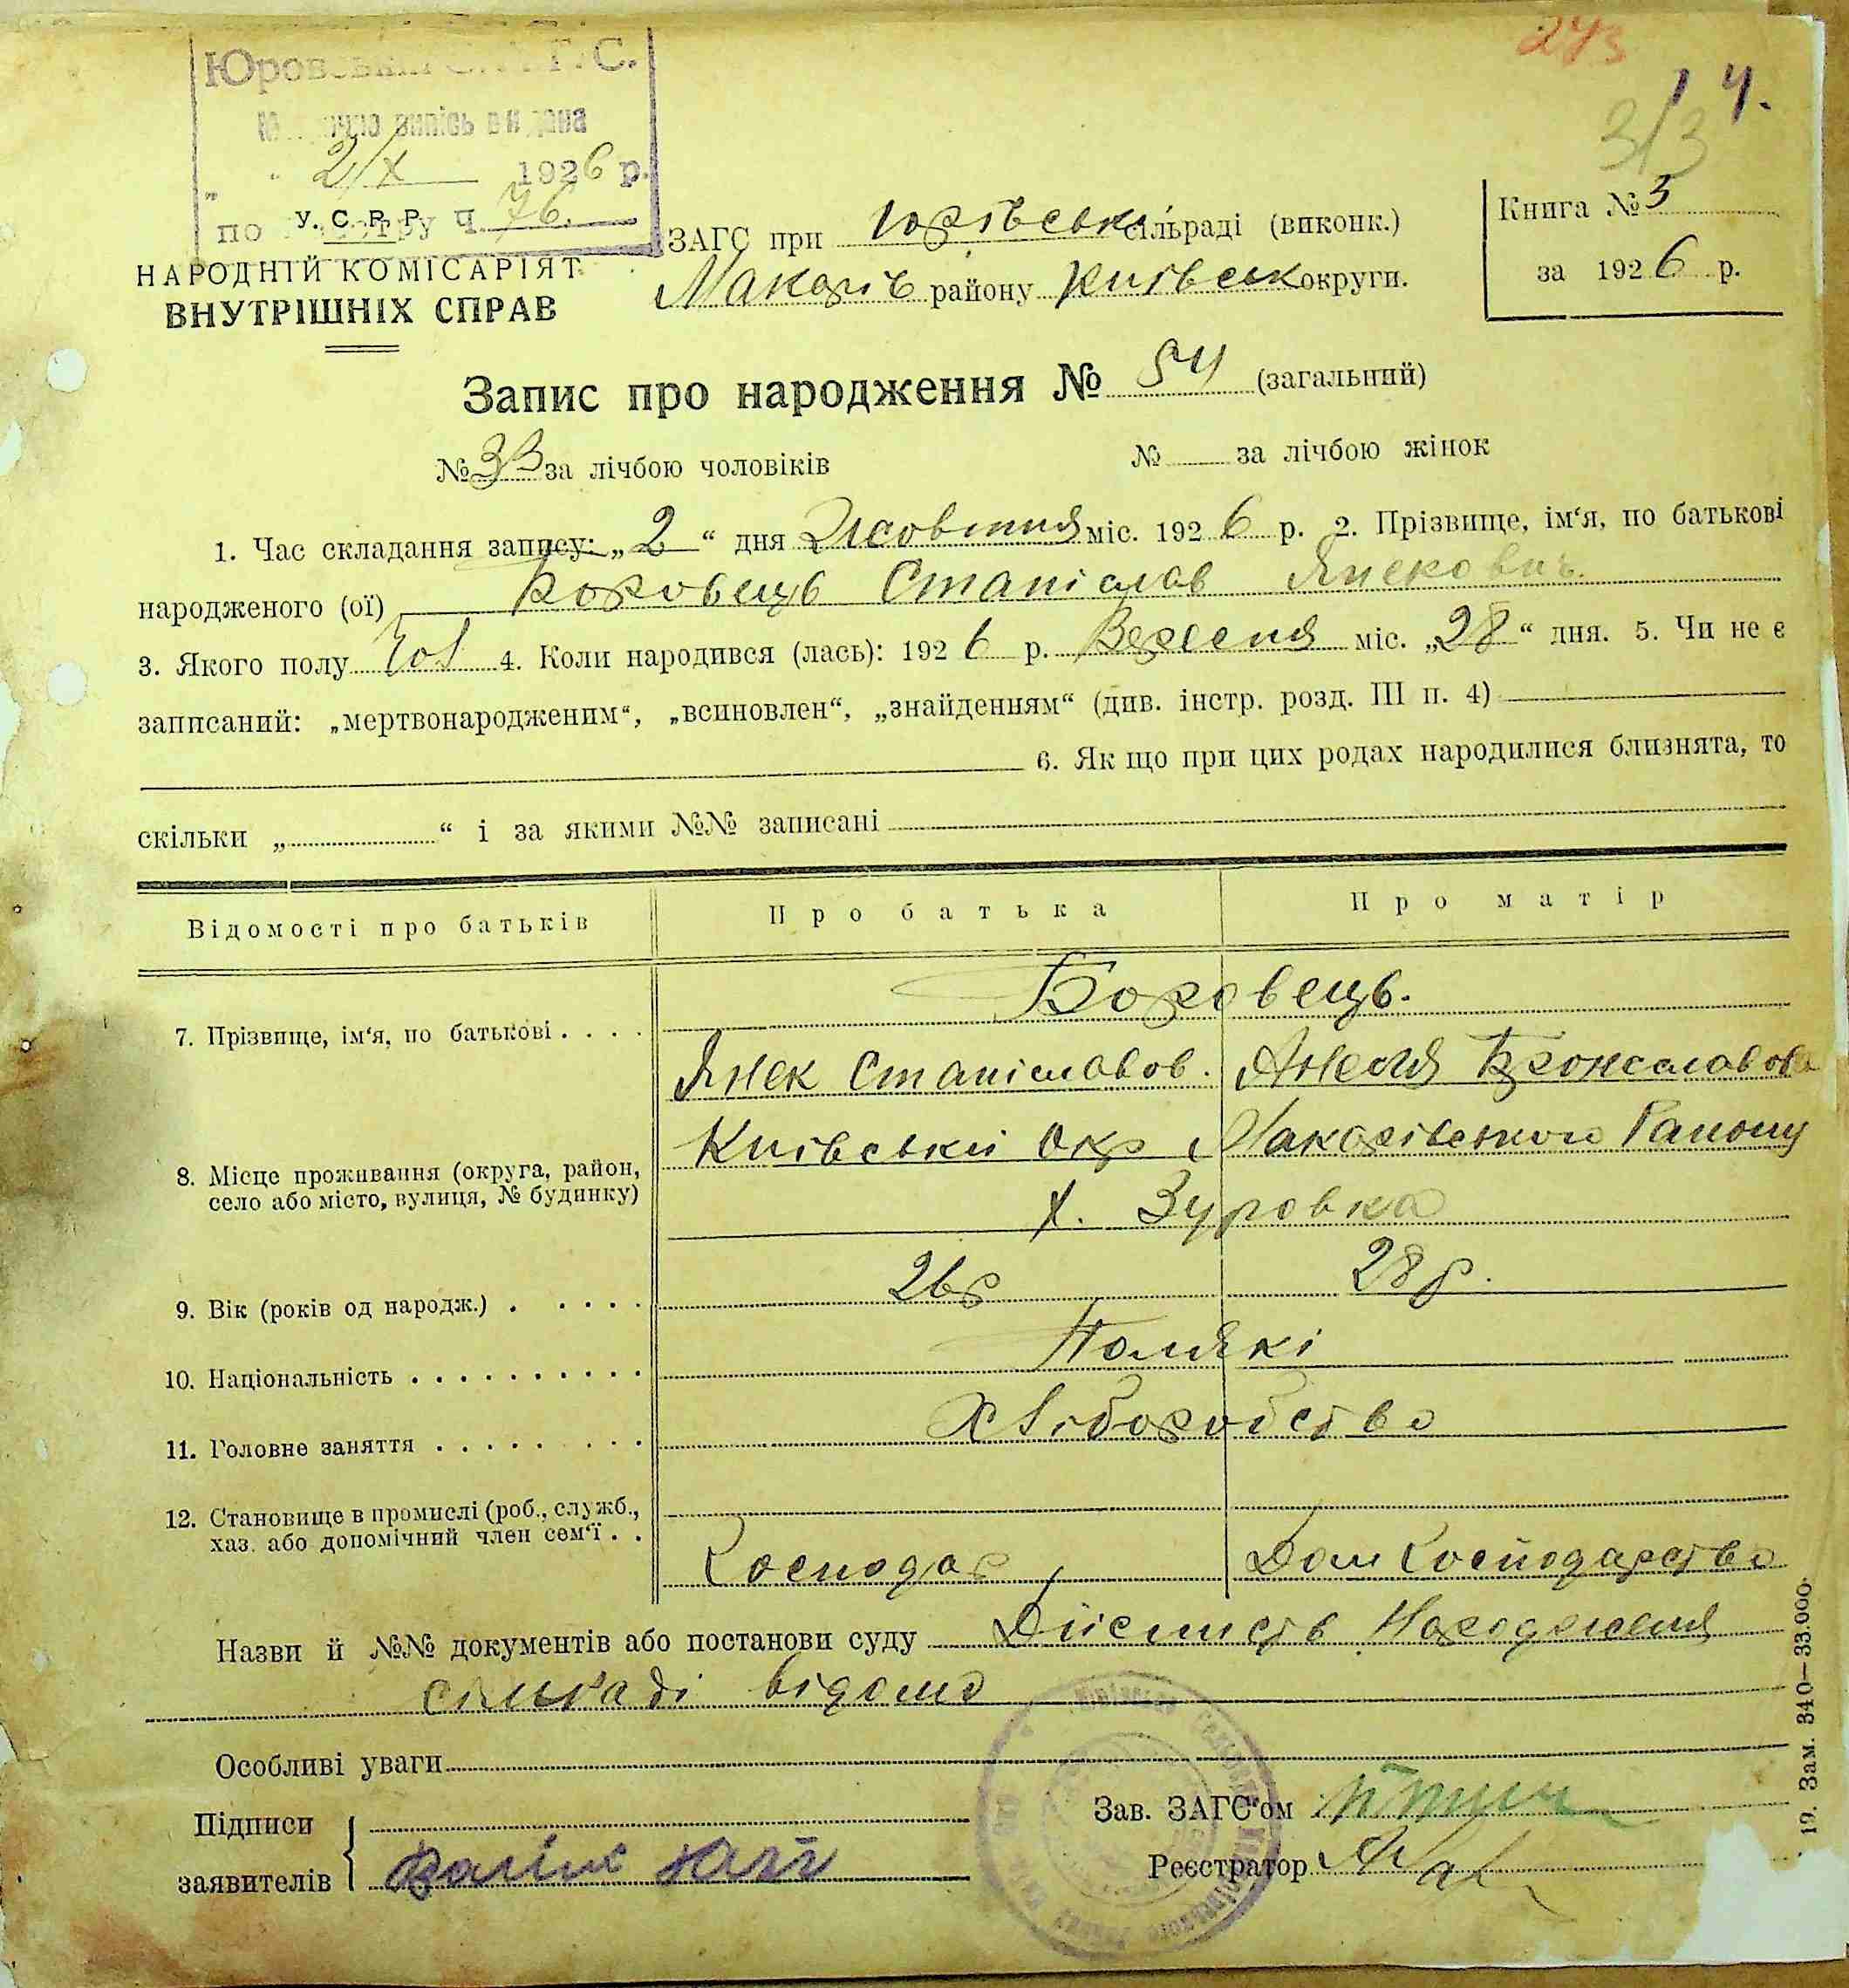 273
14.
313
Юровський С. Г. С.
випись видана
" 2/X 1926 р.
по реєстру Ч. 76.
У. С. Р. Р.
НАРОДНІЙ КОМІСАРІЯТ
ВНУТРІШНІХ СПРАВ
ЗАГС при Юрівській сільраді (виконк.)
Макарів району Київськ округи.
Книга № 3
за 1926 р.
Запис про народження № 54 (загальний)
№ 33 за лічбою чоловіків № за лічбою жінок
1. Час складання запису: „2“ дня Жовтня міс. 1926 р. 2. Прізвище, ім‘я, по батькові
народженого (ої) Боровець Станіслав Янекович.
3. Якого полу Чол 4. Коли народився (лась): 1926 р. Вересня міс. „28“ дня. 5. Чи не є
записаний: „мертвонародженим“, „всиновлен“, „знайденням“ (див. інстр. розд. III п. 4)
6. Як що при цих родах народилися близнята, то
скільки „ “ і за якими №№ записані
Відомості про батьків Про батька Про матір
7. Прізвище, ім‘я, по батькові . . . . Боровець.
Янек Станіславов. Анеля Броніславова
8. Місце проживання (округа, район, село або місто, вулиця, № будинку) Київській Окр Макарівського Району
х. Зуровка
9. Вік (років од народж.) . . . . . 26р 28р.
10. Національність . . . . . . . . . . Поляки
11. Головне заняття . . . . . . . . Хліборобство
12. Становище в промислі (роб., служб., хаз. або допомічний член сем‘ї . . Господар Дом Господарство
Назви й №№ документів або постанови суду Дійсність Народження
сільраді відомо
Особливі уваги
Підписи
заявителів
Зав. ЗАГС‘ом
Реєстратор
19. Зам. 340—33.000.